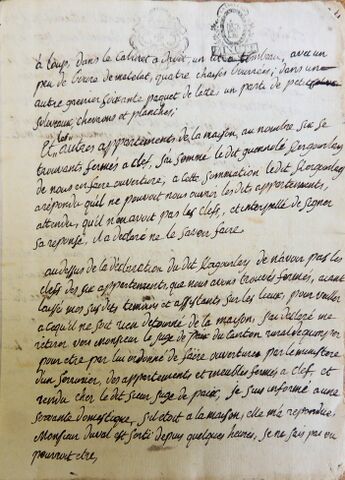 à loup, dans le Cabinet a droit, un lit à tombeau, avec un
peu de bourre de matelat, quatre chaises bourrées; dans un
autre grenier soixante paquet de latte, un parti de petit
soliveaux, chevrons et planches;
Et les autres appartements de la maison, au nombre six se
trouvants fermés a clef, j'ai sommé le dit guenole Kergonlay
de nous en faire ouverture, a cette sommation le dit Kergonlay
a répondu qu'il ne pouvoit nous ouvrir les dit appartements,
attendu, qu'il n'en avoit pas les clefs, et interpellé de signer
sa reponse, il a declaré ne le sçavoir faire
au desus de la declaration du dit Kergonlay de n'avoir pas les
clefs des six appartements, que nous avons trouvés fermés, aiant
laissé nos sus dits temoins et assistants sur les lieux, pour veiller
a ce qu'il ne soit rien detourné de la maison, j'ai déclaré me
retirer vers monsieur le juge de paix du Canton rural de quimper
pour etre par lui ordonné de faire ouverture, par le ministere
d'un serrurier, des appartements et meubles fermés a clef, et
rendu chez le dit sieur juge de paix, je suis informé a une
servante domestique, s'il etoit a la maison, elle m'a repondue,
Monsieur duval est sorti depuis quelques heures, je ne sais pas ou
pourroit etre,